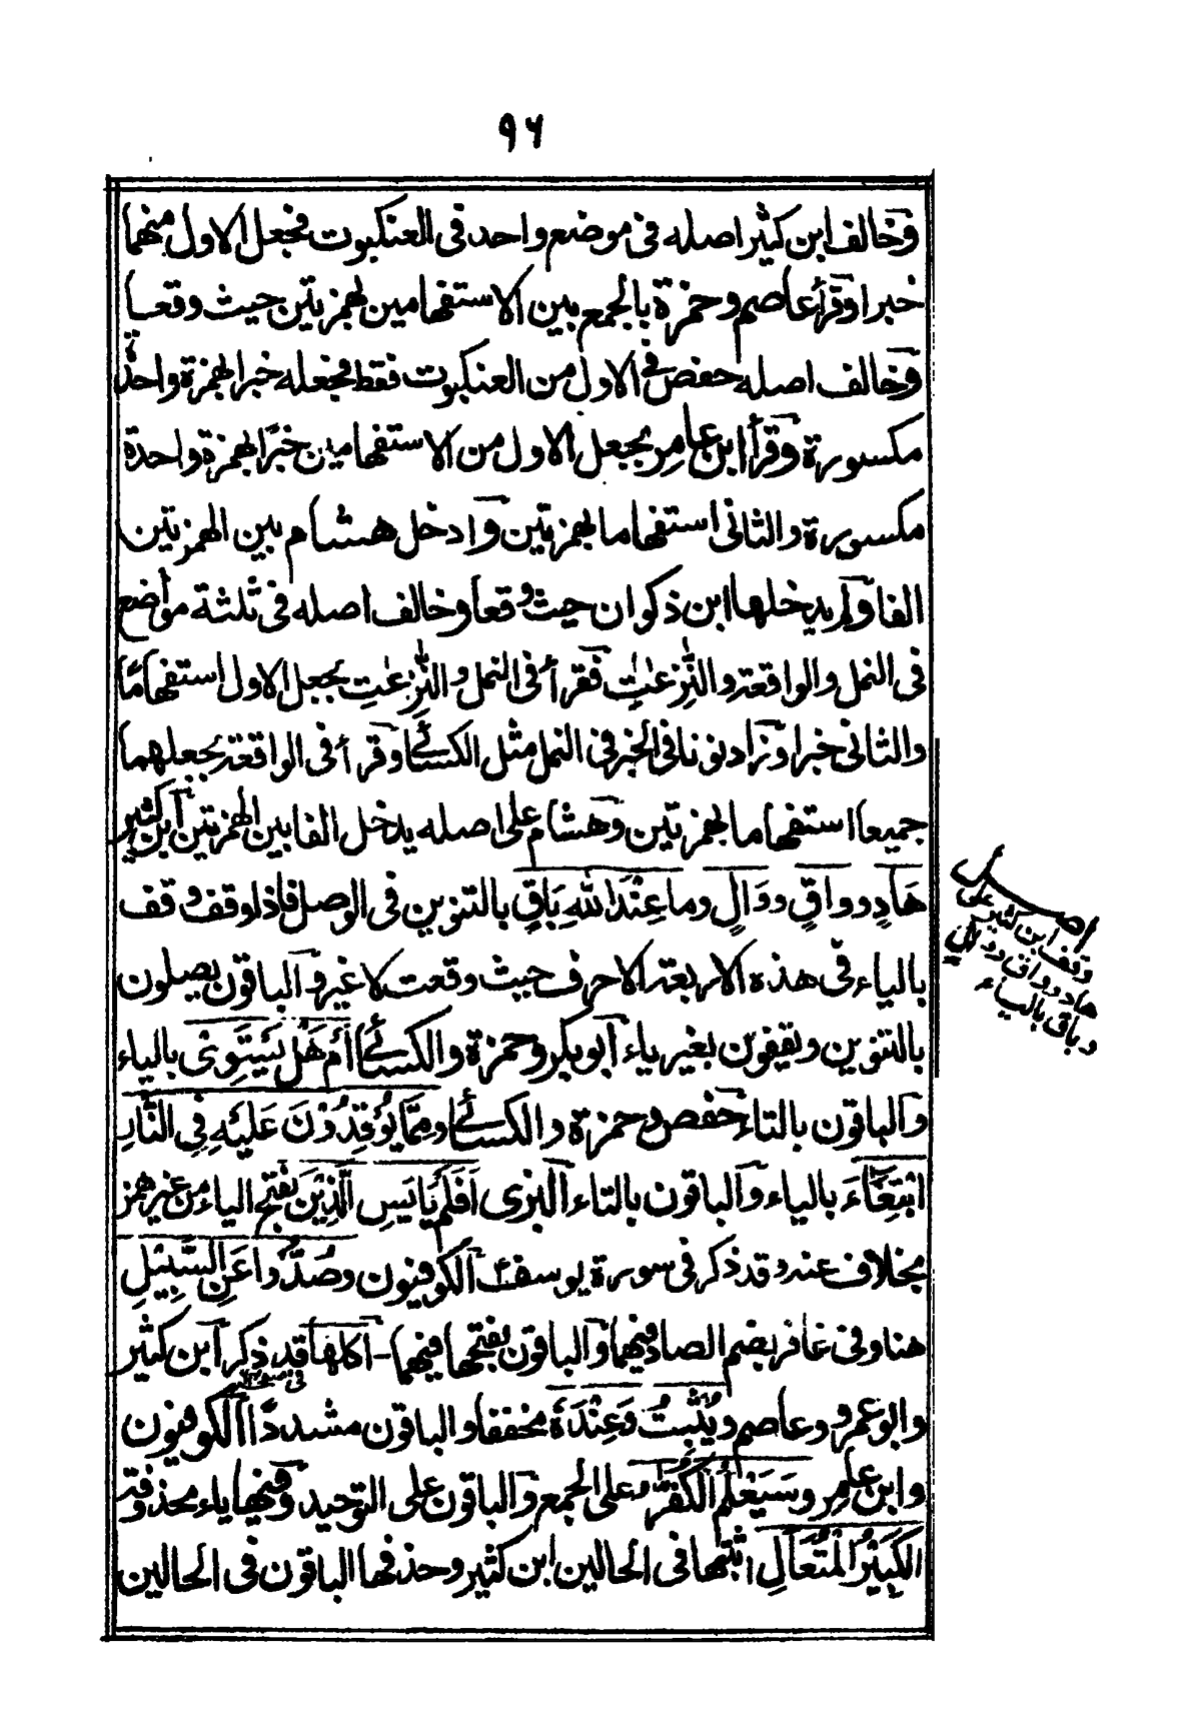 ٩٦
وخالف ابن كثير اصله فى موضع واحد فى العنكبوت فجعل الاول منهما
خبرا وقرأ عاصم وحمزة بالجمع بين الاستفهامين بهمزتين حيث وقعا
وخالف اصله حفص فى الاول من العنكبوت فقط فجعله خبرا بهمزة واحدة
مكسورة وقرأ ابن عامر بجعل الاول من الاستفهامين خبرًا بهمزة واحدة
مكسورة والثانى استفهاما بهمزتين وادخل هشام بين الهمزتين
الفا ولم يدخلها ابن ذكوان حيث وقعا وخالف اصله فى ثلثة مواضع
فى النمل والواقعة والنّٰزعٰتِ فقرأ فى النمل والنّٰزعٰتِ بجعل الاول استفهامًا
والثانى خبرا وزاد نونا فى الخبر فى النمل مثل الكسائى وقرأ فى الواقعة بجعلهما
جميعا استفهاما بهمزتين وهشام على اصله يدخل الفا بين الهمزتين ابن كثير
هَادٍ وواقٍ ووَالٍ وما عِنْدَ اللهِ بَاقٍ بالتنوين فى الوصل فاذا وقف وقف
بالياء فى هذه الاربعة الاحرف حيث وقعت لا غير والباقون يصلون
بالتنوين ويقفون بغير ياء ابو بكر وحمزة والكسائى أَمْ هَلْ يَسْتَوِى بالياء
والباقون بالتاء حفص وحمزة والكسائى ومِمَّا يُوْقِدُوْنَ عَلَيْهِ فِى النَّارِ
ابْتِغَاءَ بالياء والباقون بالتاء البزى اَفَلَمْ يَايَسِ الَّذِيْنَ بفتح الياء من غير همز
بخلاف عنه وقد ذكر فى سورة يوسف الكوفيون وصُدُّوا عَنِ السَّبِيْلِ
هنا وفى غافر بضم الصاد فيهما والباقون بفتحها فيهما - اكلها قد ذكر ابن كثير
وابو عمرو وعاصم ويُثْبِتُ وَعِنْدَهٗ مخففا والباقون مشددًا الكوفيون
وابن عامر وسَيَعْلَمُ الْكُفّٰرُ على الجمع والباقون على التوحيد وفيها ياء محذوفة
الْكَبِيْرُ الْمُتَعَالِ اثبتها فى الحالين ابن كثير وحذفها الباقون فى الحالين
اصل
وقف ابن كثير على
هاد وواق ووال
وباق بالياء